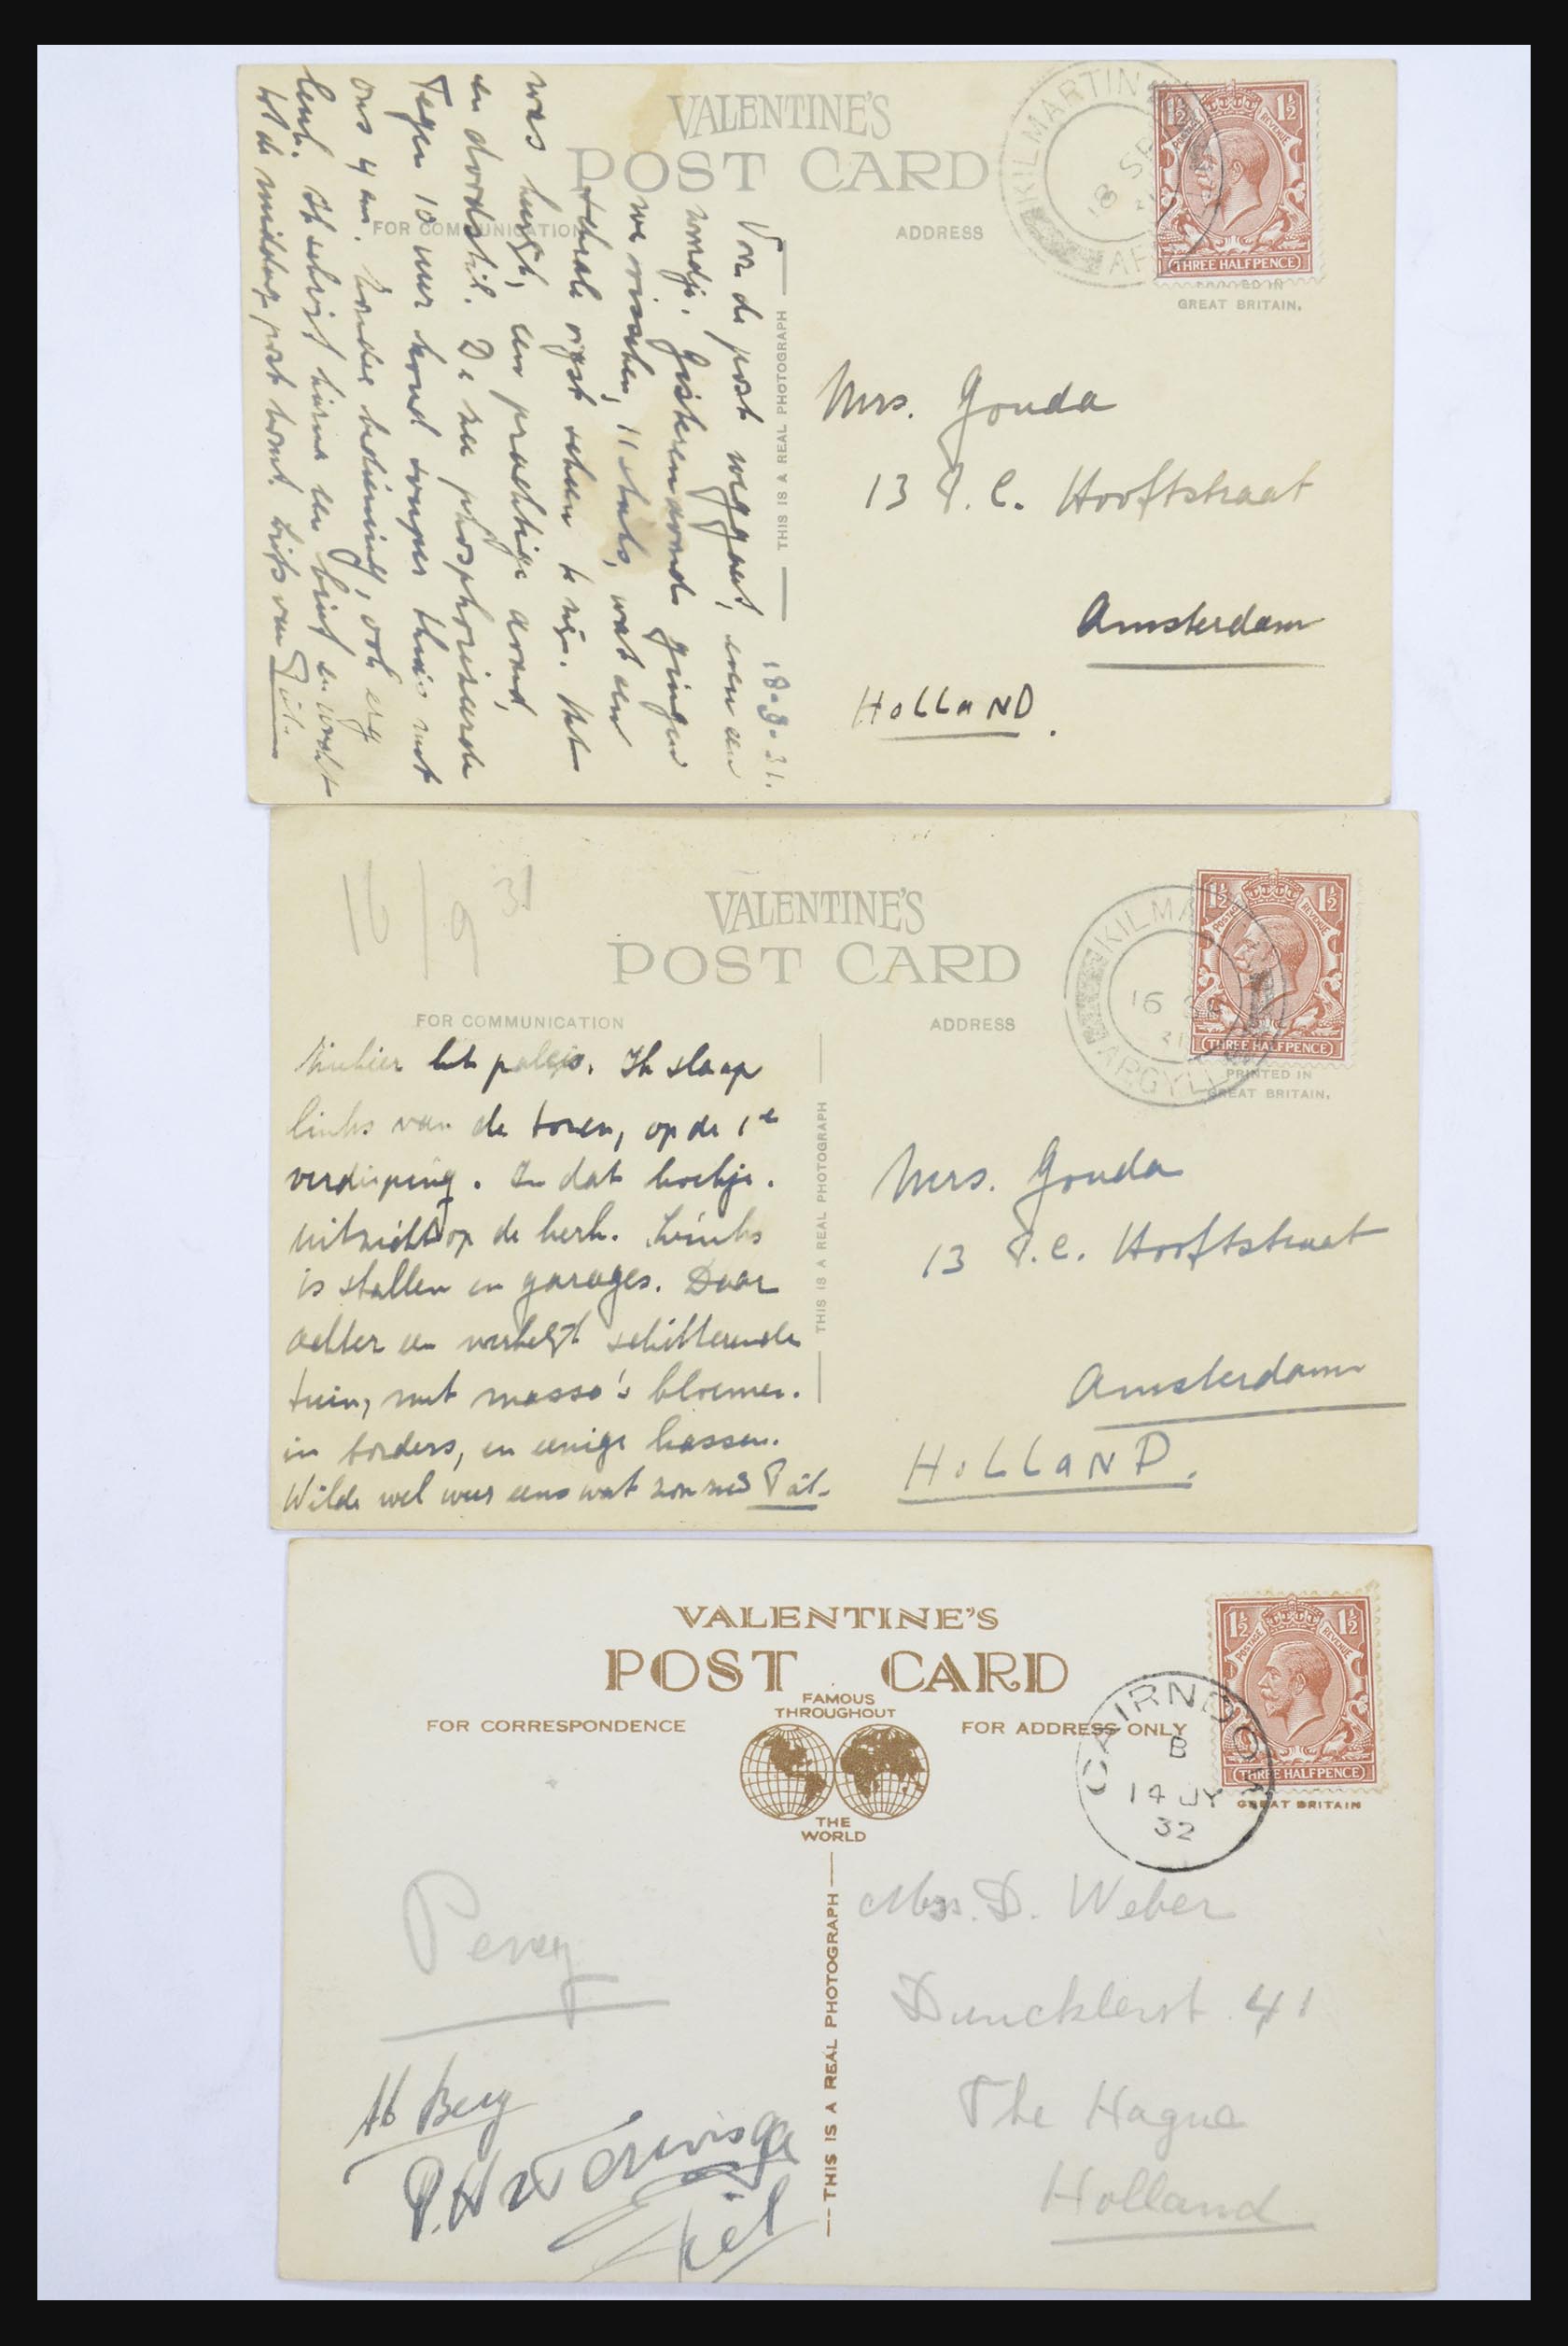 VALENTINE'S
POST CARD
FOR COMMUNICATION
ADDRESS
KILMARTIN
18 SP
1½ 1½
POSTAGE REVENUE
THREE HALFPENCE
GREAT BRITAIN.
THIS IS A REAL PHOTOGRAPH
18-9-31.
Voor de post weggaat, even een
woordje. Gisterenavond gingen
we visschen, 11 stuks, wat een
schrale vigst scheen te zijn. Het
was heerlijk, een prachtige avond,
en doodstil. De zee phosphoriseerde
Tegen 10 uur koud souper thuis met
ons 4 en. Zonder bediening, ook erg
leuk. Ik schrijf hierna een brief en wacht
tot de middag post komt. Liefs van Püt.
Mrs. Gouda
13 P.C. Hooftstraat
Amsterdam
HOLLAND.
16/9 31
VALENTINE'S
POST CARD
FOR COMMUNICATION
ADDRESS
KILMA
16 SP
31
ARGYLL
1½ 1½
POSTAGE REVENUE
THREE HALFPENCE
PRINTED IN
GREAT BRITAIN.
THIS IS A REAL PHOTOGRAPH
Ziehier het paleis. Ik slaap
links van de toren, op de 1e
verdieping. In dat hoekje.
Uitzicht op de kerk. Links
is stallen en garages. Daar
achter een schitterende
tuin, met massa's bloemen.
in borders, en eenige kassen.
Wilde wel weer eens wat zon zien Püt.
Mrs. Gouda
13 P.C. Hooftstraat
Amsterdam
HOLLAND.
VALENTINE'S
POST CARD
FAMOUS
THROUGHOUT
THE
WORLD
FOR CORRESPONDENCE
FOR ADDRESS ONLY
CAIRNDOW
B
14 JY
32
1½ 1½
POSTAGE REVENUE
THREE HALFPENCE
GREAT BRITAIN
THIS IS A REAL PHOTOGRAPH
Percy
Ab Berg
P.H.
Mrs. D. Weber
Duncklerst 41
The Hague
Holland